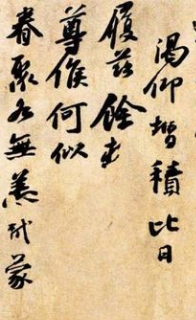 渴仰增積比日
履茲餘寒
尊候何似
眷聚各無恙軾蒙